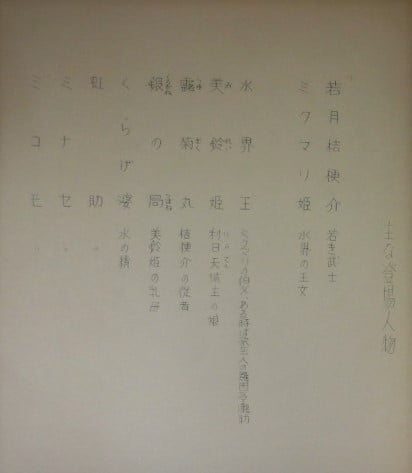 主な登場人物
若月桔梗介 若き武士
ミクマリ姫 水界の王女
水界王 ミクマリの伯父 ある時は
美鈴姫 城主の娘
露菊丸 桔梗介の従者
銀の局 美鈴姫の乳母
くらげ婆 水の精
虹助 〃
ミナセ 〃
ミコモ 〃